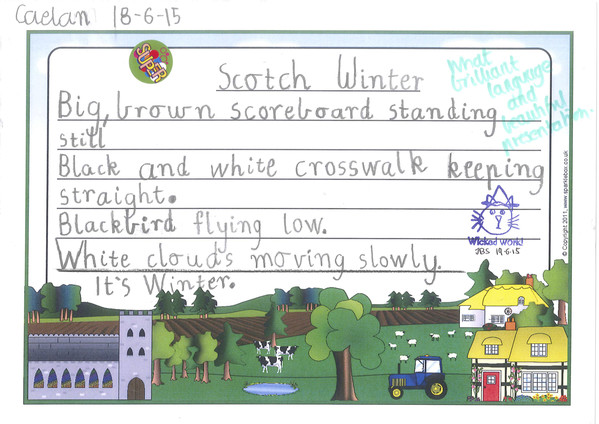 Caelan 18-6-15
SUPER
Scotch Winter
What
brilliant
language
and
beautiful
presentation.
Big, brown scoreboard standing
still
Black and white crosswalk keeping
straight.
Blackbird flying low.
White clouds moving slowly.
It's Winter.
Wicked work!
JBS 19-6-15
© Copyright 2011, www.sparklebox.co.uk